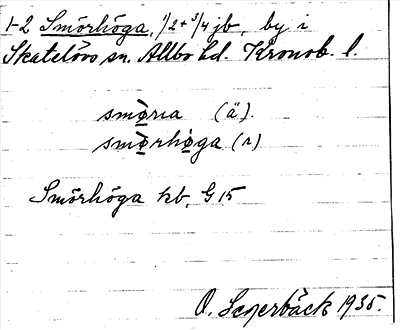 1-2 Smörhöga, 1/2 + 3/4 jb, by i
Skatelövs sn. Allbo hd. Kronob. l.
smø̀rıa (ä).
smø̀rhøga (n)
Smörhöga kb, G 15
O. Segerbäck 1935.